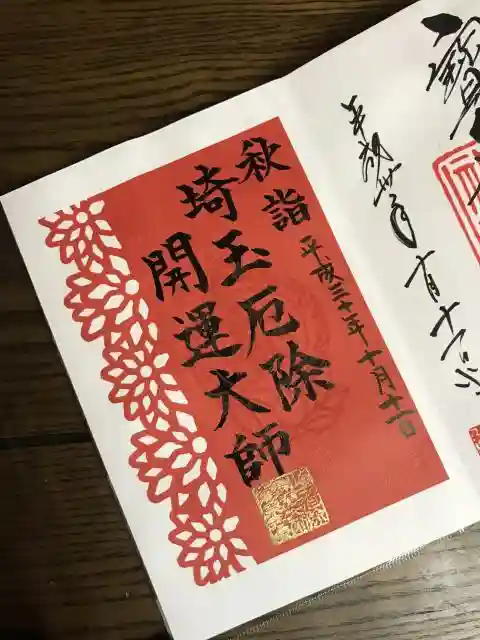 平成卅年十月十一日
秋詣
平成三十年十月十一日
埼玉厄除
開運大師